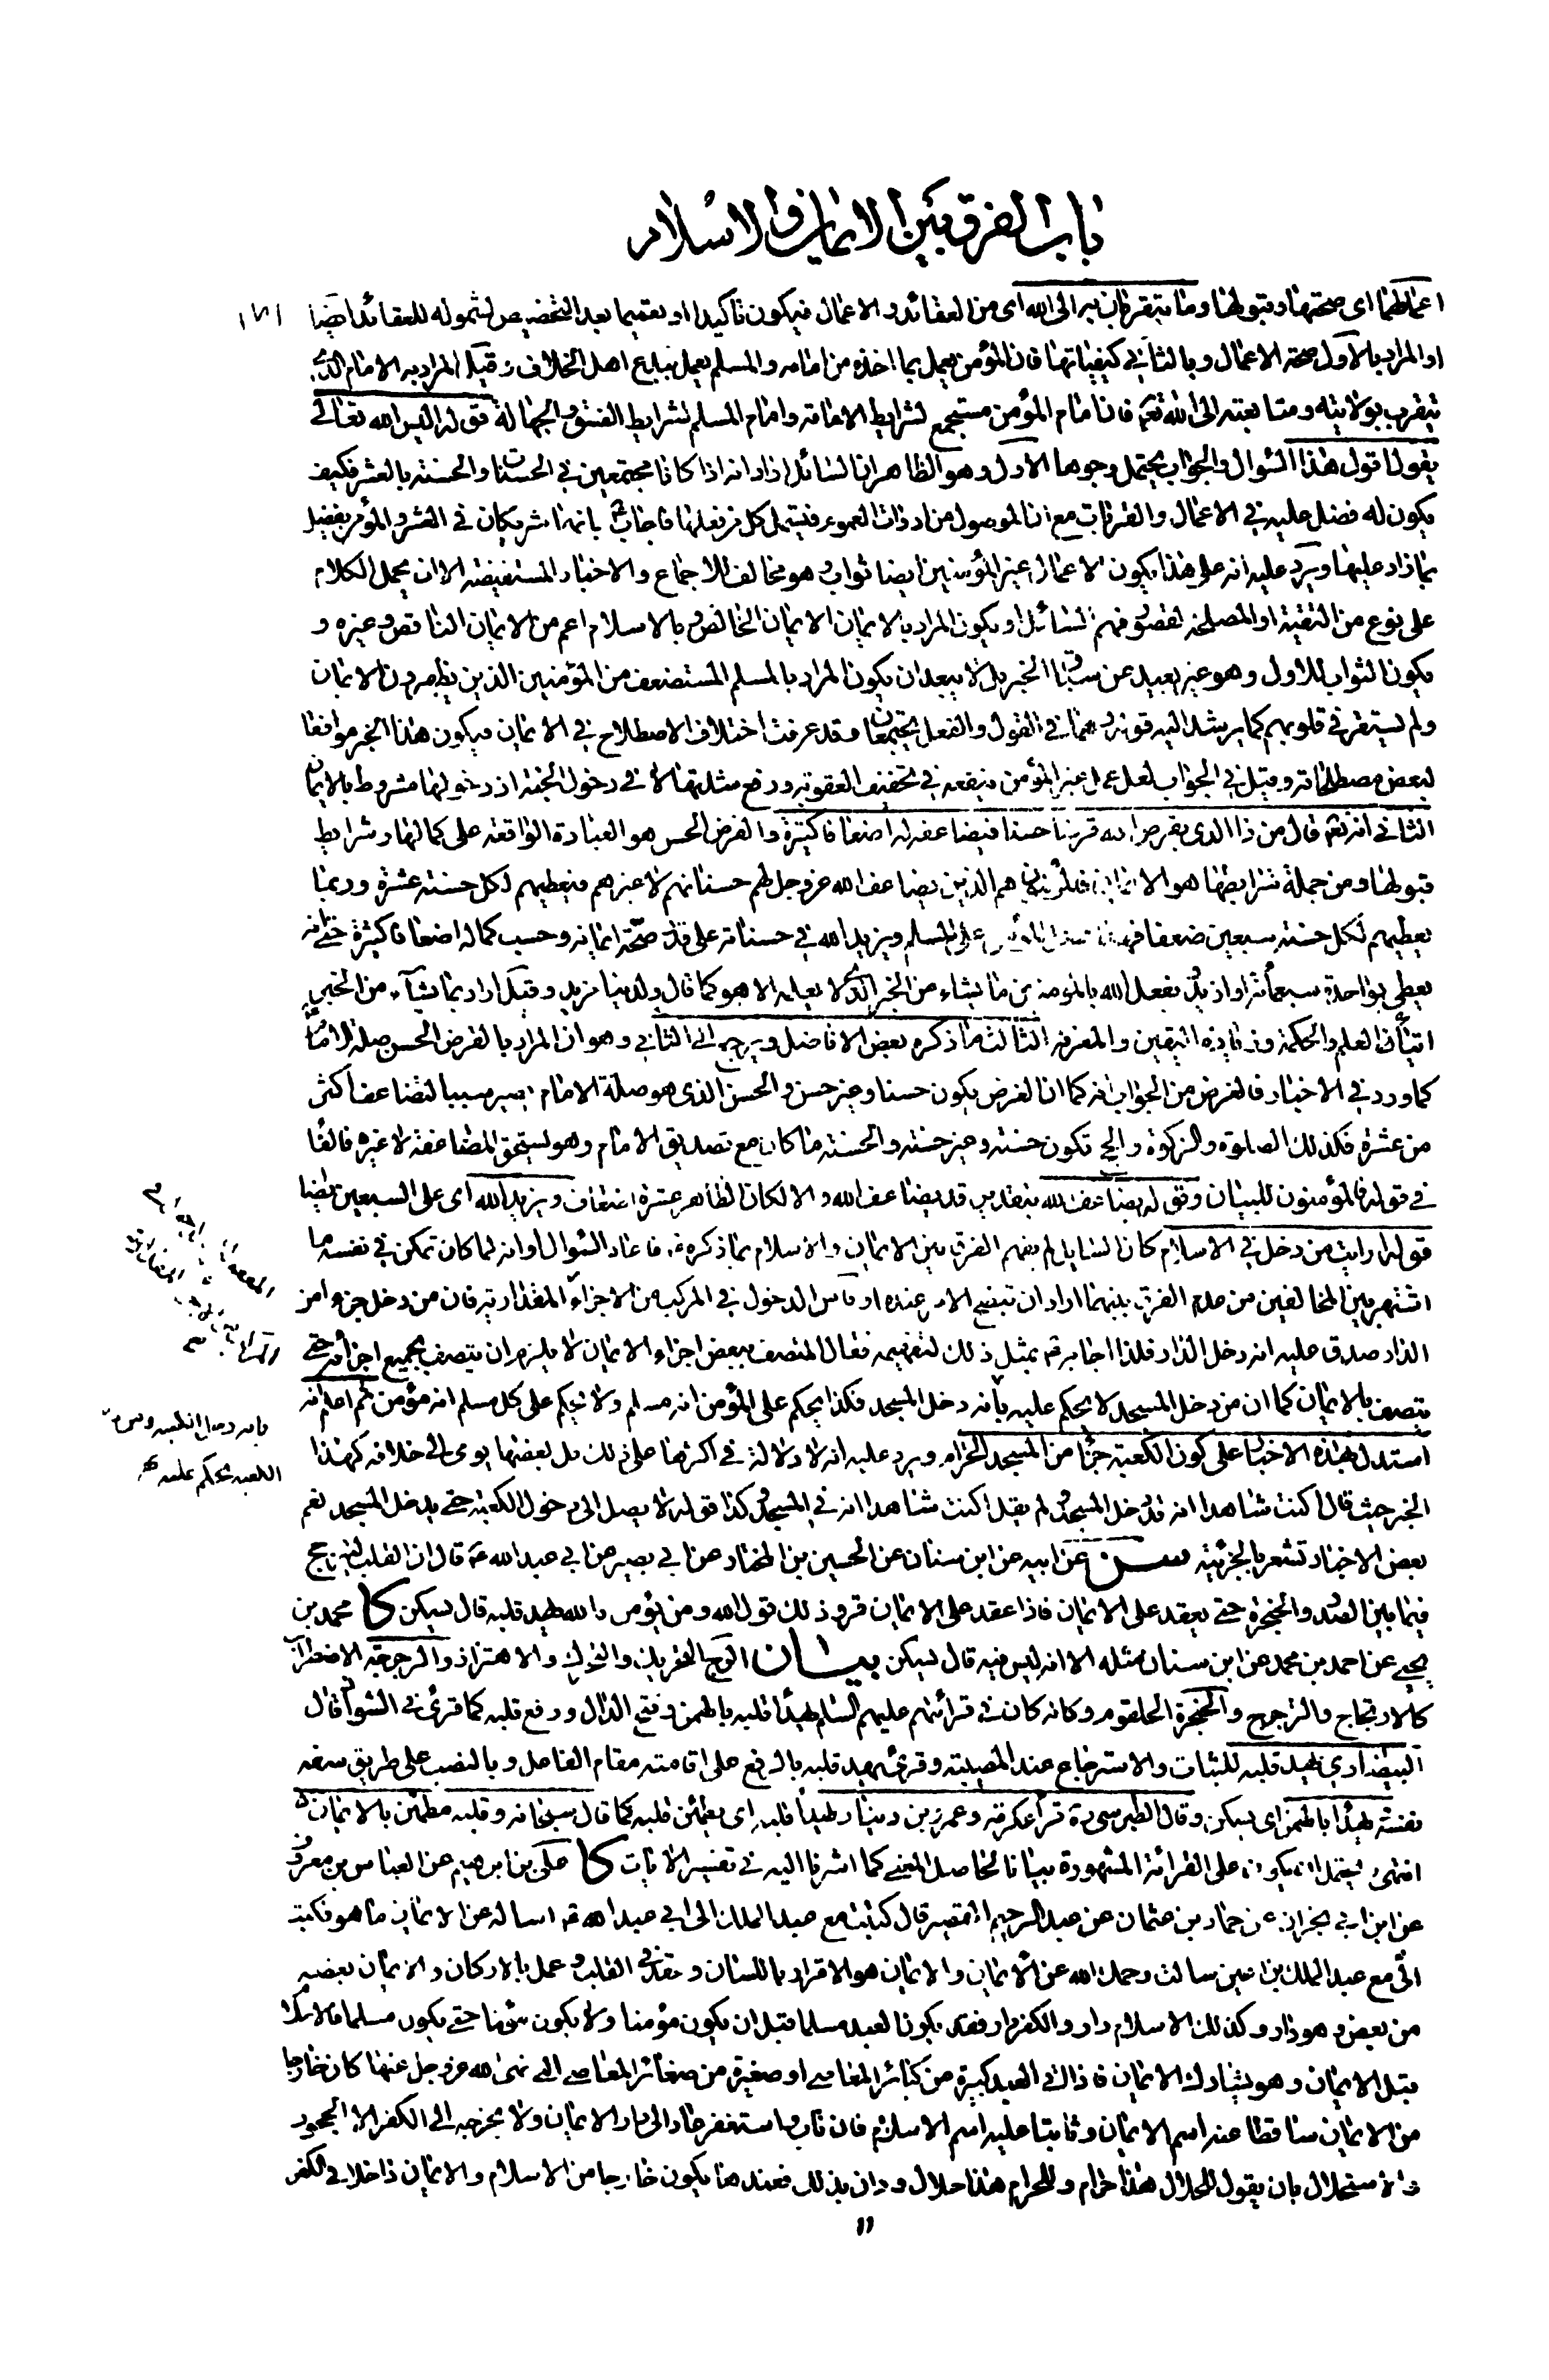 باب الفرق بين الايمان والاسلام
اعمالهما اى صحتها وقبولها وما يتقربان به الى الله اى من العقائد والاعمال فيكون تأكيدا او تعميما بعد التخصيص لشموله للعقائد ايضا
او المراد بالاول صحة الاعمال وبالثانى كيفياتها فان المؤمن يعمل بما اخذه من امامه والمسلم يعمل ببدع اهل الخلاف وقيل المراد به الامام الذى
يتقرب بولايته ومتابعته الى الله تعالى فان امام المؤمن مستجمع لشرايط الامامة وامام المسلم لشرايط الفسق والجهالة قوله اليس الله تعالى
يقول اقول هذا السؤال والجواب يحتمل وجوها الاول وهو الظاهر ان السائل اراد انه اذا كانا مجتمعين فى الحسنات والحسنة بالعشر فكيف
يكون له فضل عليه فى الاعمال والقربات مع ان الموصول من ادوات العموم فيشمل كل من فعلها فاجاب ع بانهما شريكان فى العشر والمؤمن يفضل
بما زاد عليها ويرد عليه انه على هذا يكون لاعمال غير المؤمنين ايضا ثواب وهو مخالف للاجماع والاخبار المستفيضة الا ان يحمل الكلام
على نوع من التقية او المصلحة لقصور فهم السائل او يكون المراد بالايمان الايمان الخالص وبالاسلام اعم من الايمان الناقص وغيره و
يكون الثواب للاول وهو غير بعيد عن سياق الخبر بل لا يبعد ان يكون المراد بالمسلم المستضعف من المؤمنين الذين يظهرون الايمان
ولم يستقر فى قلوبهم كما يرشد اليه قوله وهما فى القول والفعل يجتمعان وقد عرفت اختلاف الاصطلاح فى الايمان فيكون هذا الخبر موافقا
لبعض مصطلحاته وقيل فى الجواب لعل عمل غير المؤمن ينفعه فى تخفيف العقوبة ورفع شدتها لا فى دخول الجنة اذ دخولها مشروط بالايمان
الثانى انه تعالى قال من ذا الذى يقرض الله قرضا حسنا فيضاعفه له اضعافا كثيرة والقرض الحسن هو العبادة الواقعة على كمالها وشرايط
قبولها ومن جملة شرايطها هو الايمان فالمؤمنون هم الذين يضاعف الله عز وجل لهم حسناتهم لا غيرهم فيعطيهم لكل حسنة عشرة وربما
يعطيهم لكل حسنة سبعين ضعفا فهذا فضل المؤمن على المسلم ويزيد الله فى حسناته على قدر صحة ايمانه وحسب كماله اضعافا كثيرة حتى انه
يعطى بواحدة سبعمأة او ازيد يفعل الله بالمؤمنين ما يشاء من الخير الذى لا يعلمه الا هو كما قال ولدينا مزيد وقيل اراد بما يشاء من الخير
ايتاء العلم والحكمة وزيادة اليقين والمعرفة الثالث ما ذكره بعض الافاضل ويرجع الى الثانى وهو ان المراد بالقرض الحسن صلة الامام
كما ورد فى الاخبار فالغرض من الجواب انه كما ان القرض يكون حسنا وغير حسن والحسن الذى هو صلة الامام يصير سببا لتضاعف اكثر
من عشرة فكذلك الصلوة والزكوة والحج تكون حسنة وغير حسنة والحسنة ما كان مع تصديق الامام وهو يستحق المضاعفة لا غيره فالفاء
فى قوله فالمؤمنون للبيان وقوله يضاعف الله بتقدير قد يضاعف الله والا لكان الظاهر عشرة اضعاف ويزيد الله اى على السبعين ايضا
قوله ارايت من دخل فى الاسلام كان السايل لم يفهم الفرق بين الايمان والاسلام بما ذكره ع فاعاد السؤال او انه لما كان تمكن فى نفسه ما
اشتهر بين المخالفين من عدم الفرق بينهما اراد ان يتضح الامر عنده او قاس الدخول فى المركب من الاجزاء المقدارية فان من دخل جزءا من
الدار صدق عليه انه دخل الدار فلذا اجابه ع بمثل ذلك لتفهيمه فقال المتصف ببعض اجزاء الايمان لا يلزم ان يتصف بجميع اجزائه حتى
يتصف بالايمان كما ان من دخل المسجد لا يحكم عليه بأنه دخل المسجد فكذا يحكم على المؤمن انه مسلم ولا يحكم على كل مسلم انه مؤمن ثم اعلم انه
استدل بهذه الاخبار على كون الكعبة جزءا من المسجد الحرام ويرد عليه انه لا دلالة فى اكثرها على ذلك بل بعضها يومى الى خلافه كهذا
الخبر حيث قال كنت شاهدا انه قد دخل المسجد ولم يقل كنت شاهدا انه فى المسجد وكذا قوله لا يصل الى دخول الكعبة حتى يدخل المسجد نعم
بعض الاخبار تشعر بالجزئية سن عن ابيه عن ابن سنان عن الحسين بن المختار عن ابى بصير عن ابى عبد الله ع قال ان القلب ليترجج
فيما بين الصدر والحنجرة حتى يعقد على الايمان فاذا عقد على الايمان قر وذلك قول الله ومن يؤمن بالله يهد قلبه قال يسكن كا محمد بن
يحيى عن احمد بن محمد عن ابن سنان مثله الا انه ليس فيه قال يسكن بيان الرج التحريك والتحرك والاهتزاز والرجرجة الاضطراب
كالارتجاج والترجرج والحنجرة الحلقوم وكانه كان فى قرائتهم عليهم السلام يهدأ قلبه بالهمز وفتح الدال ورفع قلبه كما قرئ فى الشواذ قال
البيضاوى يهد قلبه للثبات والاسترجاع عند المصيبة وقرئ يهد قلبه بالرفع على اقامته مقام الفاعل وبالنصب على طريق سفه
نفسه ويهدأ بالهمز اى يسكن وقال الطبرسى ره قرأ عكرمة وعمرو بن دينار يهدأ قلبه اى يطمئن قلبه كما قال سبحانه وقلبه مطمئن بالايمان
انتهى ويحتمل ان يكون على القرائة المشهورة بيانا لحاصل المعنى كما اشرنا اليه فى تفسير الايات كا على بن ابرهيم عن العباس بن معروف
عن ابن ابى نجران عن حماد بن عثمان عن عبد الرحيم القصير قال كتبت مع عبد الملك الى ابى عبد الله ع اساله عن الايمان ما هو فكتب
الى مع عبد الملك بن اعين سالت رحمك الله عن الايمان والايمان هو الاقرار باللسان وعقد فى القلب وعمل بالاركان والايمان بعضه
من بعض وهو دار وكذلك الاسلام دار والكفر دار فقد يكون العبد مسلما قبل ان يكون مؤمنا ولا يكون مؤمنا حتى يكون مسلما فالاسلام
قبل الايمان وهو يشارك الايمان فاذا اتى العبد كبيرة من كبائر المعاصى او صغيرة من صغائر المعاصى التى نهى الله عز وجل عنها كان خارجا
من الايمان ساقطا عنه اسم الايمان وثابتا عليه اسم الاسلام فان تاب واستغفر عاد الى دار الايمان ولا يخرجه الى الكفر الا الجحود
والاستحلال بان يقول للحلال هذا حرام وللحرام هذا حلال ودان بذلك فعندها يكون خارجا من الاسلام والايمان داخلا فى الكفر
١١